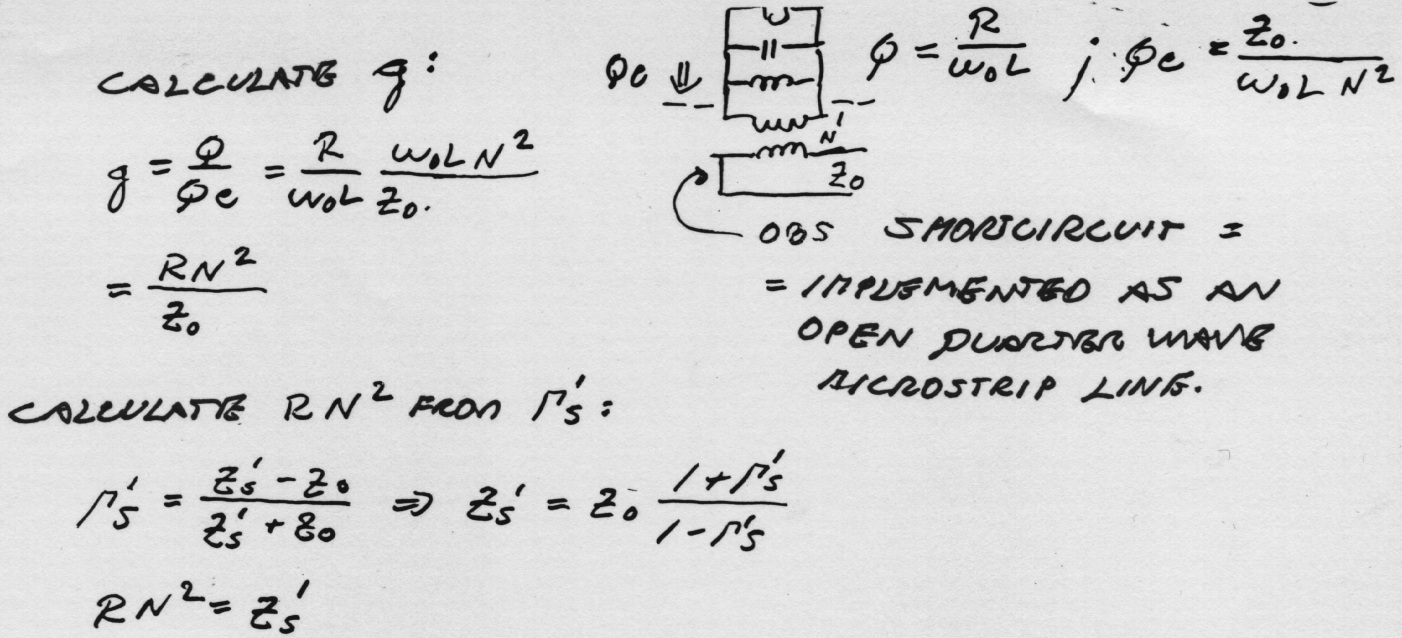 CALCULATE g:
g = Q/Qe = R/ω₀L ω₀LN²/Z₀.
= RN²/Z₀
Qe ⇓
Q = R/ω₀L ; Qe = Z₀./ω₀L N²
1
N
Z₀
OBS SHORTCIRCUIT =
= IMPLEMENTED AS AN
OPEN QUARTER WAVE
MICROSTRIP LINE.
CALCULATE RN² FROM Γ's:
Γ's = Zs' - Z₀/Zs' + Z₀ ⇒ Zs' = Z₀ 1+Γ's/1-Γ's
RN² = Zs'